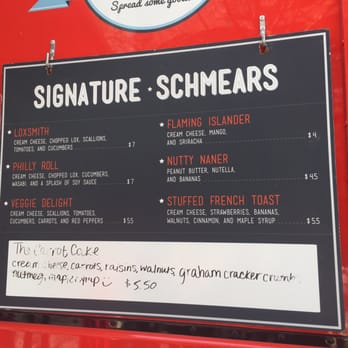 Spread some good
SIGNATURE · SCHMEARS
★ LOXSMITH
CREAM CHEESE, CHOPPED LOX, SCALLIONS,
TOMATOES, AND CUCUMBERS $7
★ PHILLY ROLL
CREAM CHEESE, CHOPPED LOX, CUCUMBERS,
WASABI, AND A SPLASH OF SOY SAUCE $7
★ VEGGIE DELIGHT
CREAM CHEESE, SCALLIONS, TOMATOES,
CUCUMBERS, CARROTS, AND RED PEPPERS $5.5
★ FLAMING ISLANDER
CREAM CHEESE, MANGO,
AND SRIRACHA $4
★ NUTTY NANER
PEANUT BUTTER, NUTELLA,
AND BANANAS $4.5
★ STUFFED FRENCH TOAST
CREAM CHEESE, STRAWBERRIES, BANANAS,
WALNUTS, CINNAMON, AND MAPLE SYRUP $5.5
The Carrot Cake
cream cheese, carrots, raisins, walnuts, graham cracker crumb
nutmeg, maple syrup $5.50